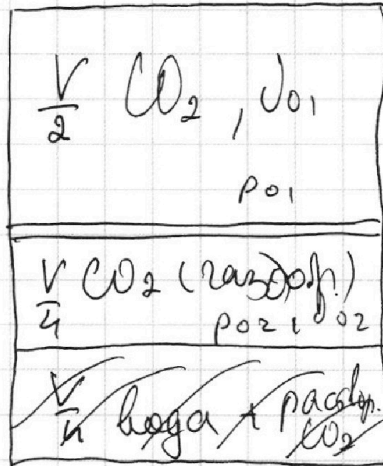 V/2 CO2, ν01
p01
V/4 CO2 (газообр.)
p02, ν02
V/4 вода + раствор. CO2